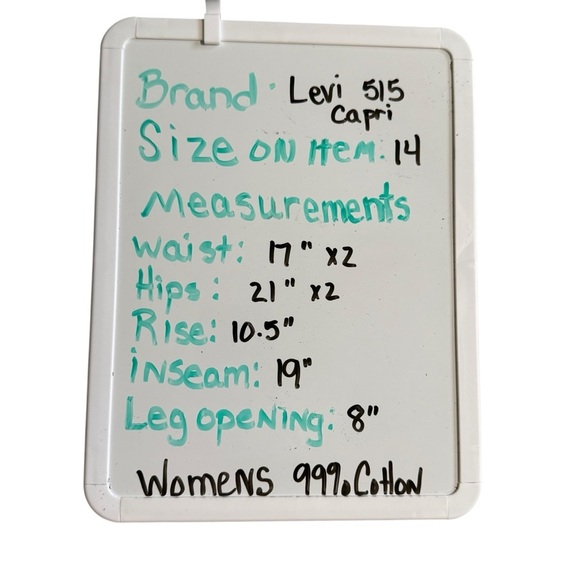 Brand: Levi 515
Capri
Size on Item. 14
Measurements
Waist: 17" x2
Hips: 21" x2
Rise: 10.5"
inseam: 19"
Leg opening: 8"
Womens 99% Cotton